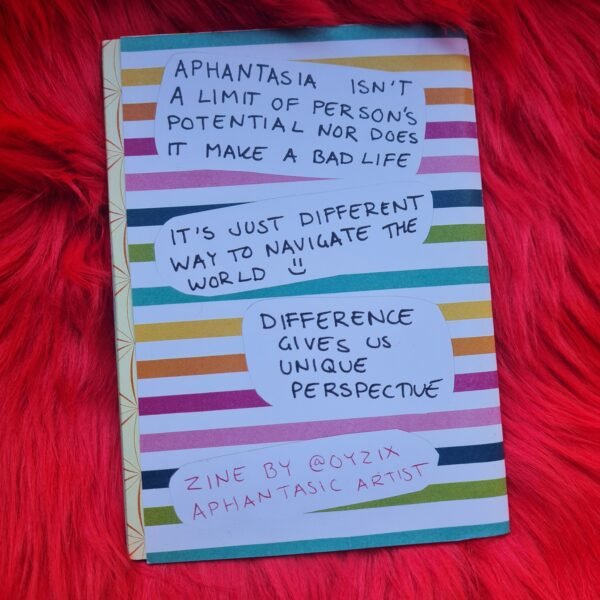 APHANTASIA ISN'T
A LIMIT OF PERSON'S
POTENTIAL NOR DOES
IT MAKE A BAD LIFE
IT'S JUST DIFFERENT
WAY TO NAVIGATE THE
WORLD
DIFFERENCE
GIVES US
UNIQUE
PERSPECTIVE
ZINE BY @OYZIX
APHANTASIC ARTIST